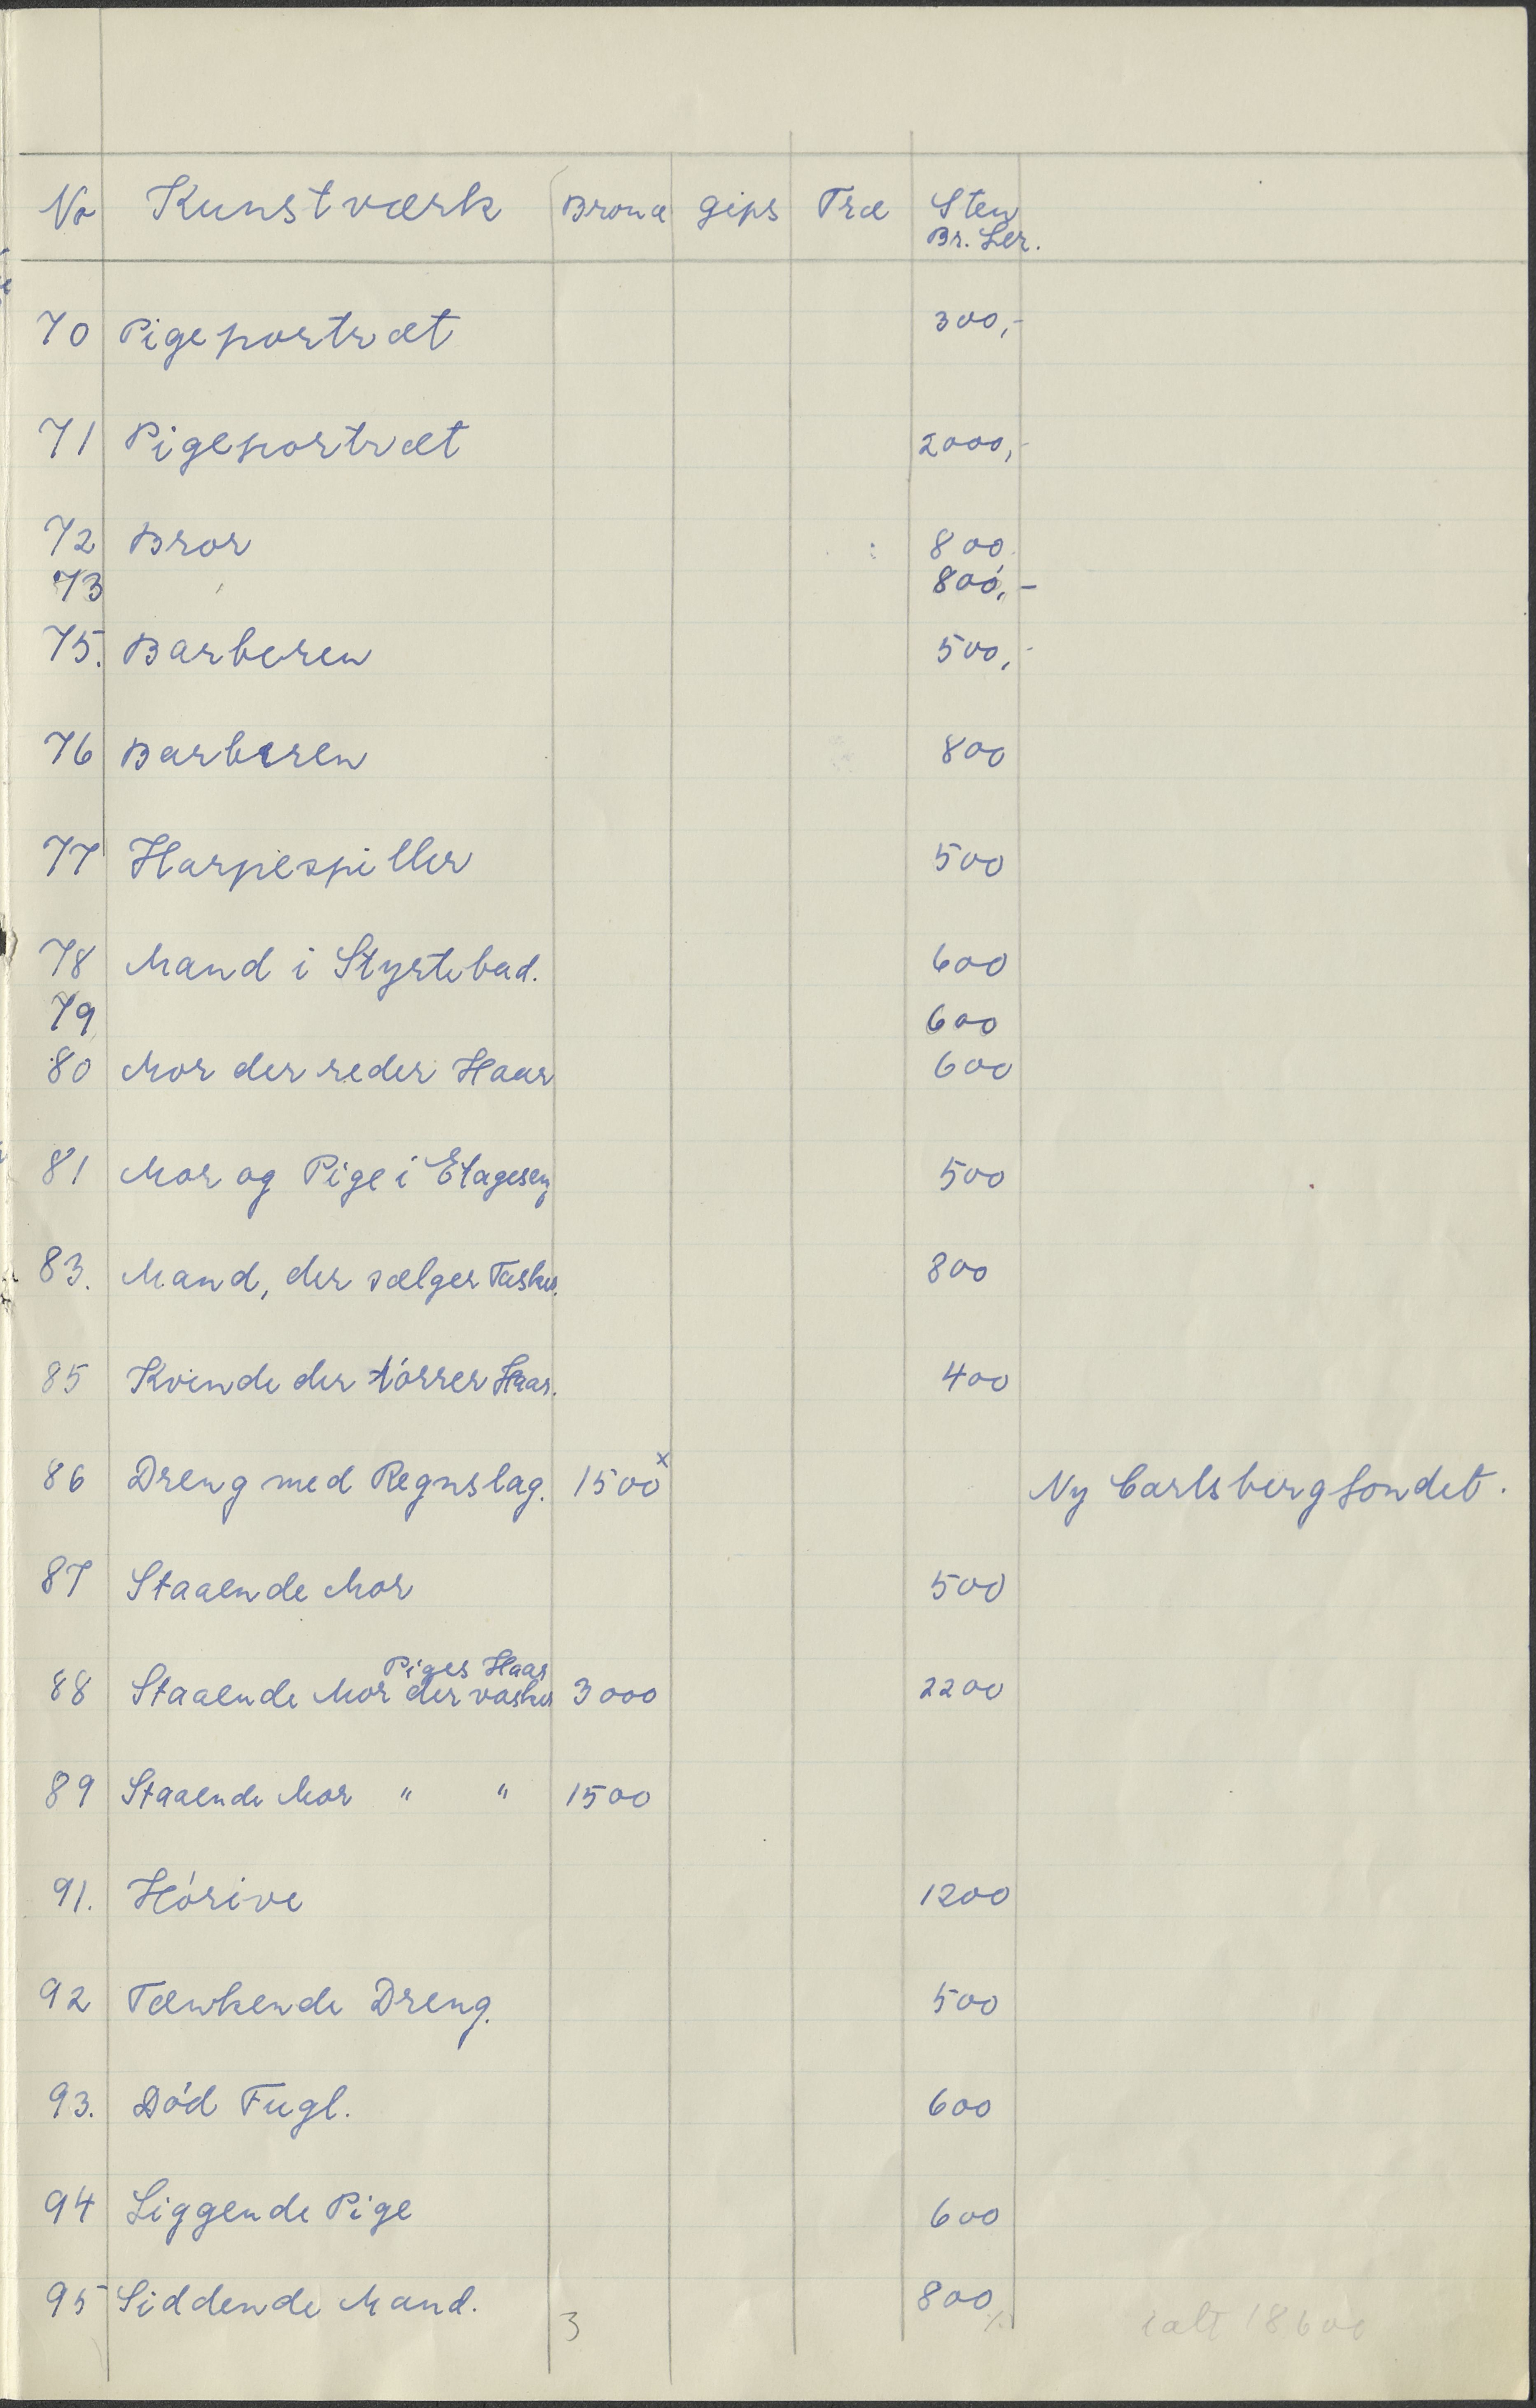 No Kunstværk Bronce gips Træ Sten
Br. Ler.
70 Pigeportræt 300,-
71 Pigeportræt 2000,-
72 Bror 800
73 800,-
75. Barberen 500,-
76 Barberen 800
77 Harpespiller 500
78 Mand i Styrtebad. 600
79 600
80 Mor der reder Haar 600
81 Mor og Pige i Etageseng 500
83. Mand, der sælger Tasker. 800
85 Kvinde der tórrer Haar. 400
86 Dreng med Regnslag. 1500x Ny Carlsbergfondet.
87 Staaende Mor 500
Piges Haar
88 Staaende Mor der vasker 3000 2200
89 Staaende Mor " " 1500
91. Hórive 1200
92 Tænkende Dreng. 500
93. Dód Fugl. 600
94 Liggende Pige 600
95 Siddende Mand. 800
3 ialt 18600